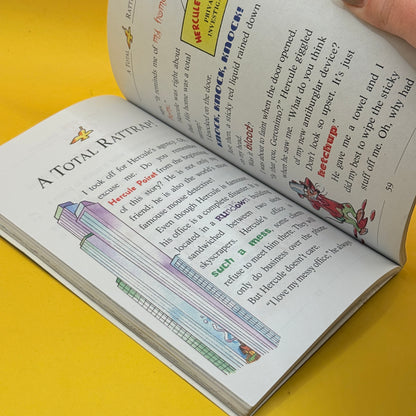 A TOTAL RATTRAP!
I took off for Hercule's agency. Oh,
excuse me. Do you remember
Hercule Poirat from the beginning
of this story? He is not only my
friend; he is also the world's most
famouse mouse detective.
Even though Hercule is famouse,
his office is a complete disaster. It's
located in a RUNDOWN
sandwiched between two
skyscrapers. Hercule's office is
such a mess, some
refuse to meet him there. They
only do business over the phone.
But Hercule doesn't care.
"I love my messy office," he always
A TOTAL RATTRAP
reminds me of
was right about
His home was a total
HERCULE
PRIVATE
INVESTIGA
on the door.
KNOCK, KNOCK, KNOCK!
then, a sticky red liquid rained down
blood?
about to faint when the door opened.
that you, Geronimo?" Hercule giggled
when he saw me. "What do you think
of my new antiburglar device?
Don't look so upset. It's just
ketchup."
He gave me a towel and I
did my best to wipe the sticky
stuff off me. Oh, why had
39